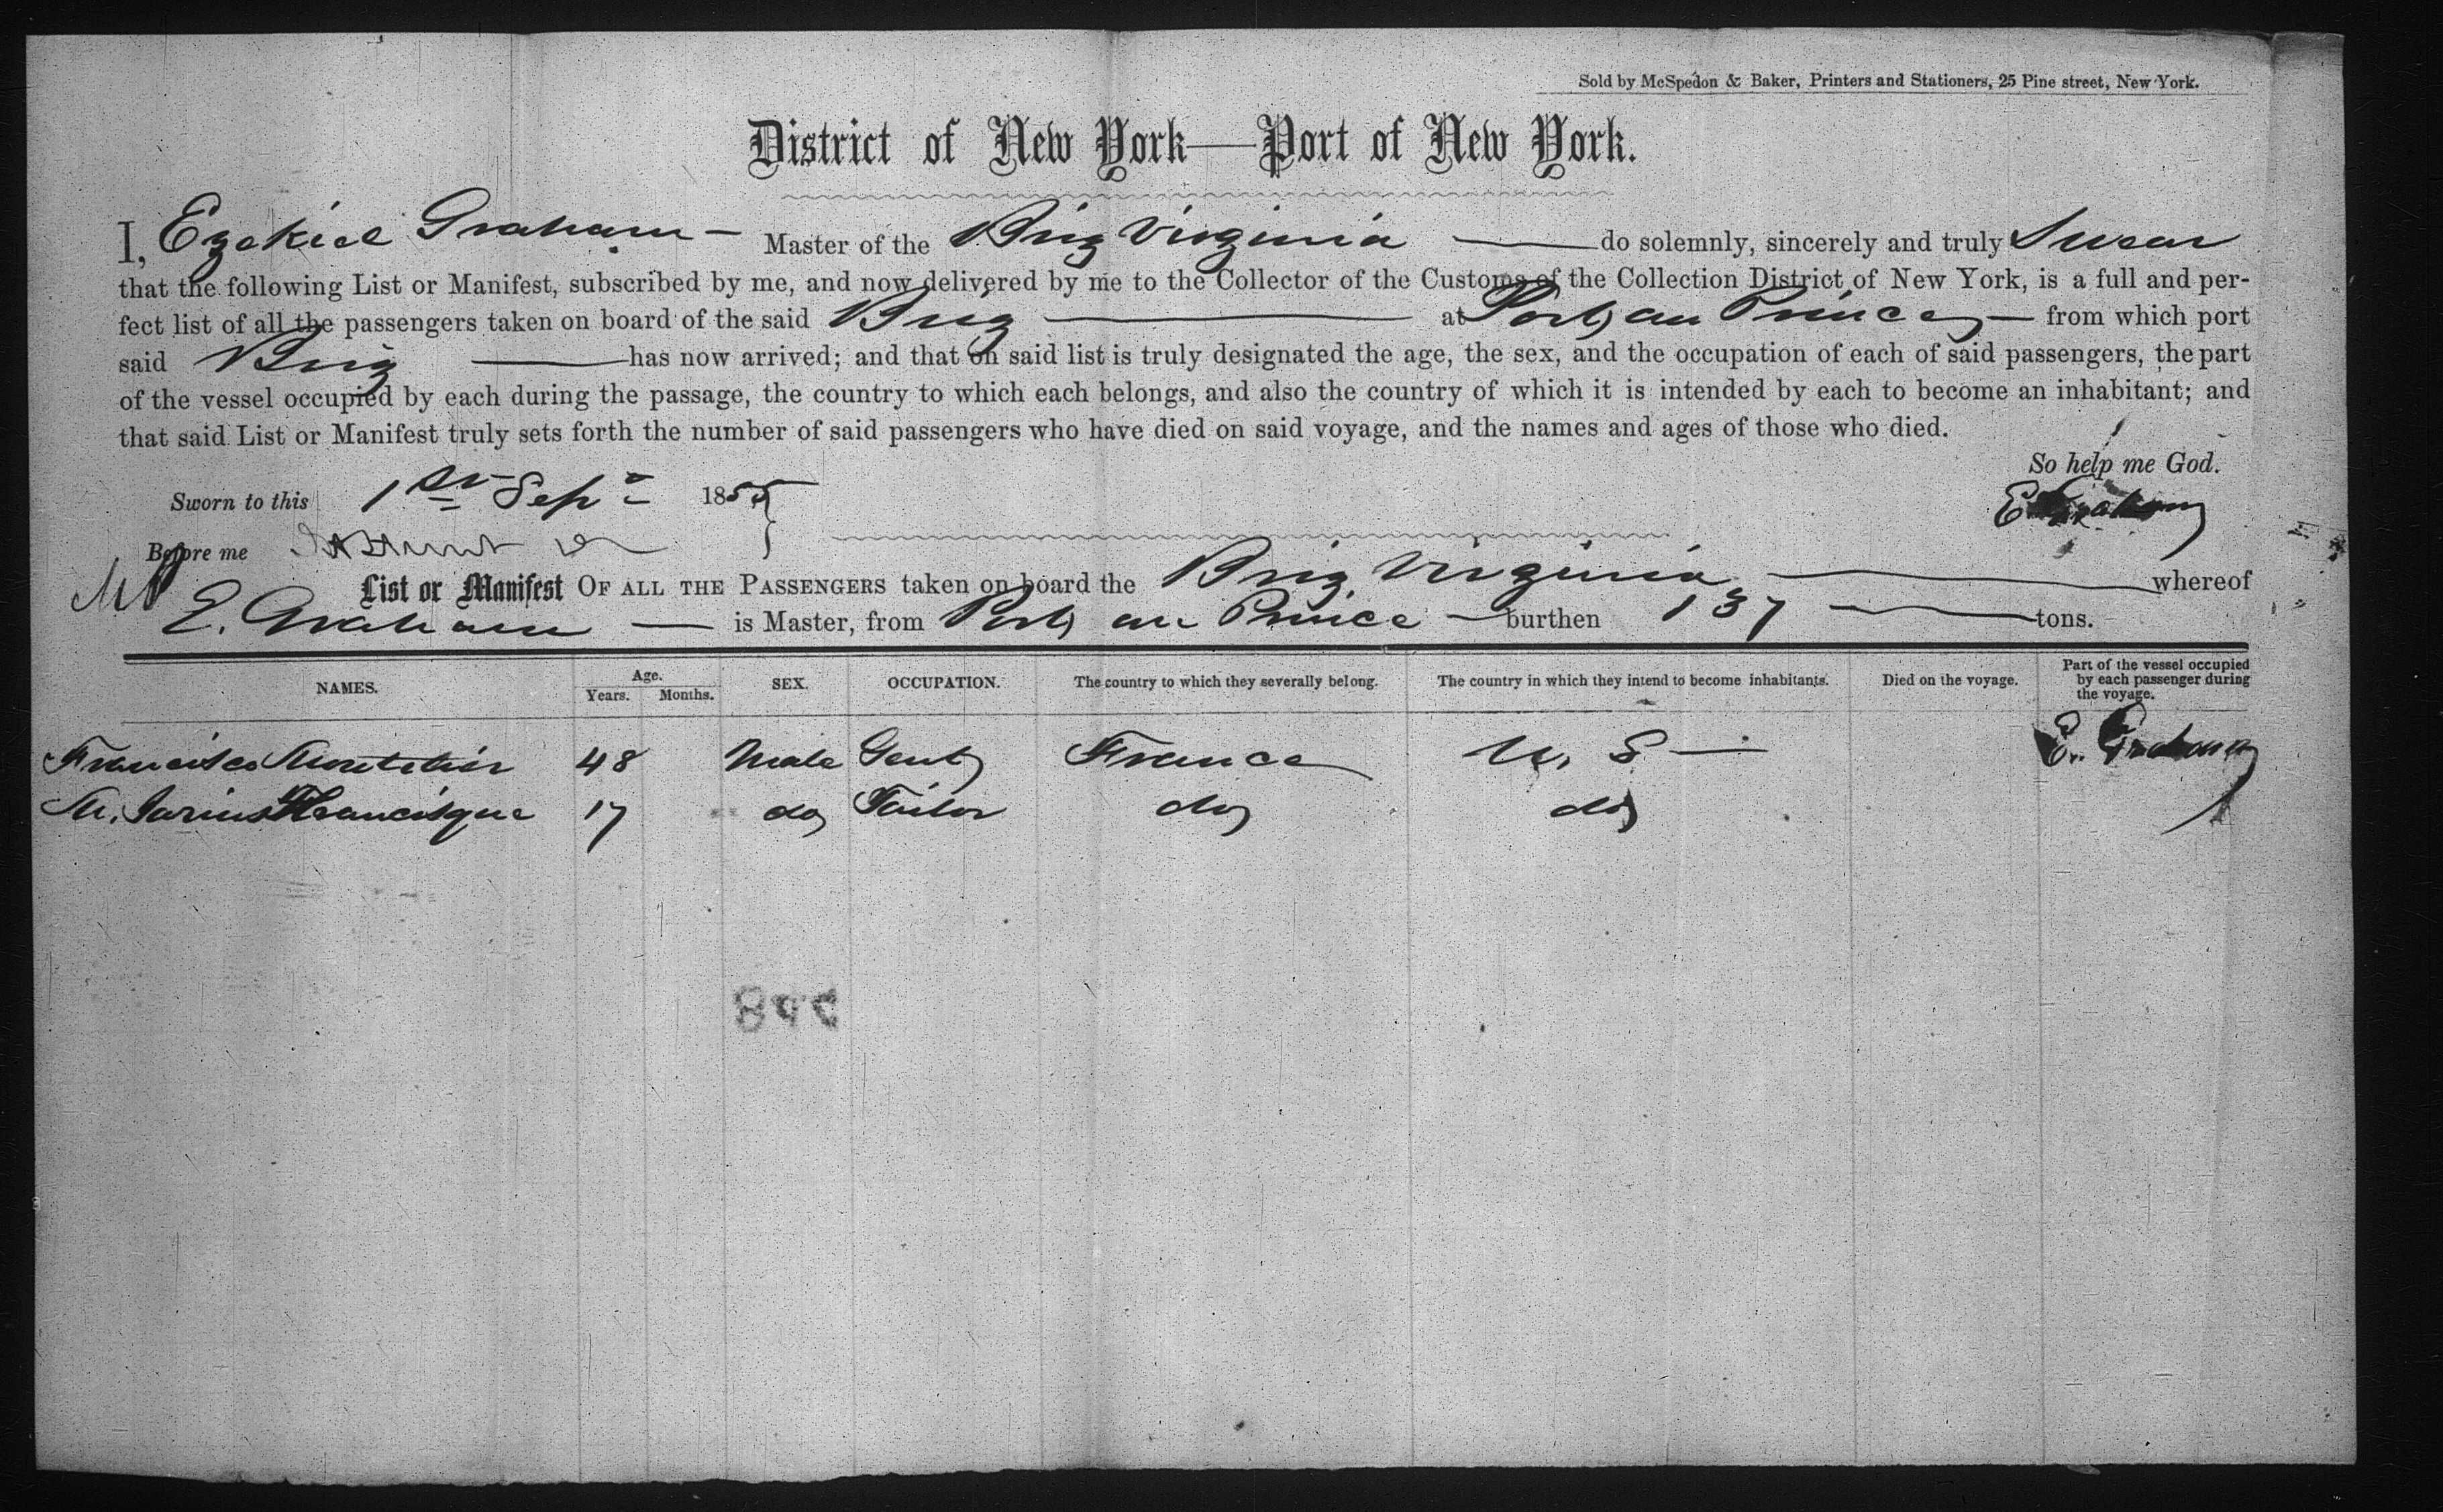 Sold by McSpedon & Baker, Printers and Stationers, 25 Pine street, New York.
District of New York—Port of New York.
I, Ezekiel Graham — Master of the Brig Virginia — do solemnly, sincerely and truly Swear
that the following List or Manifest, subscribed by me, and now delivered by me to the Collector of the Customs of the Collection District of New York, is a full and per-
fect list of all the passengers taken on board of the said Brig — at Port au Prince — from which port
said Brig — has now arrived; and that on said list is truly designated the age, the sex, and the occupation of each of said passengers, the part
of the vessel occupied by each during the passage, the country to which each belongs, and also the country of which it is intended by each to become an inhabitant; and
that said List or Manifest truly sets forth the number of said passengers who have died on said voyage, and the names and ages of those who died.
So help me God.
Sworn to this 1st Sepr 1855
E Graham
Before me
List or Manifest OF ALL THE PASSENGERS taken on board the Brig Virginia — whereof
E. Graham — is Master, from Port au Prince — burthen 137 — tons.
NAMES. Age. Years. Months. SEX. OCCUPATION. The country to which they severally belong. The country in which they intend to become inhabitants. Died on the voyage. Part of the vessel occupied by each passenger during the voyage.
Francisco 48 Male Gent France U. S — E. Graham
M. Francisque 17 do Tailor do do